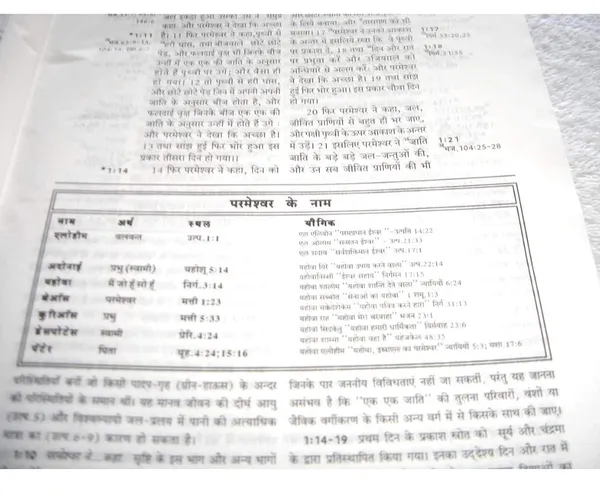 जल इकट्ठा हुआ उसको उस ने समुद्र
कहा, और परमेश्वर ने देखा कि अच्छा
*1:11
है। 11 फिर परमेश्वर ने कहा, पृथ्वी से
हरी घास, तथा बीजवाले छोटे छोटे
पेड़, और फलदाई वृक्ष भी जिनके बीज
उन्हीं में एक एक की जाति के अनुसार
होते हैं पृथ्वी पर उगें; और वैसा ही
हो गया। 12 तो पृथ्वी से हरी घास,
और छोटे छोटे पेड़ जिन में अपनी अपनी
जाति के अनुसार बीज होता है, और
फलदाई वृक्ष जिनके बीज एक एक की
जाति के अनुसार उन्हीं में होते हैं उगे :
और परमेश्वर ने देखा कि अच्छा है।
13 तथा सांझ हुई फिर भोर हुआ इस
प्रकार तीसरा दिन हो गया।।
*1:14
14 फिर परमेश्वर ने कहा, दिन को
के लिये बनाया, और तारागण को भी
बनाया। 17 परमेश्वर ने उनको आकाश
के अन्तर में इसलिये रखा कि वे पृथ्वी
पर प्रकाश दें, 18 तथा दिन और रात
पर प्रभुता करें और उजियाले को
अन्धियारे से अलग करें: और परमेश्वर
ने देखा कि अच्छा है। 19 तथा सांझ
हुई फिर भोर हुआ। इस प्रकार चौथा दिन
हो गया।
20 फिर परमेश्वर ने कहा, जल,
जीवित प्राणियों से बहुत ही भर जाए,
और पक्षी पृथ्वी के ऊपर आकाश के अन्तर
में उड़ें। 21 इसलिए परमेश्वर ने "जाति
जाति के बड़े बड़े जल-जन्तुओं की,
और उन सब जीवित प्राणियों की भी
1:17
1:18
1:21
भज.104:25-28
परमेश्वर के नाम
नाम अर्थ स्थल यौगिक
एलोहीम बलवन्त उत्प.1:1
एल एलियोन "परमप्रधान ईश्वर" - उत्पत्ति 14:22
एल ओलाम "सनातन ईश्वर" - उत्प.21:33
एल शदाय "सर्वशक्तिमान ईश्वर" - उत्प.17:1
अदोनाई प्रभु (स्वामी) यहोशू 5:14
यहोवा मैं जो हूं सो हूं निर्ग.3:14
थेऑस परमेश्वर मत्ती 1:23
कुरिऑस प्रभु मत्ती 5:33
डेसपोटेस स्वामी प्रेरि.4:24
पॅटेर पिता यूह.4:24;15:16
यहोवा यिरे "यहोवा उपाय करने वाला" उत्प.22:14
यहोवानिस्सी "ईश्वर सहाय" निर्गमन 17:15
यहोवा शालोम "यहोवा शान्ति देने वाला" न्यायियों 6:24
यहोवा सब्बोत "सेनाओं का यहोवा" 1 शमू.1:3
यहोवा मकोदेशकेम "यहोवा पवित्र करने हारा" निर्ग 31:13
यहोवा राह "यहोवा मेरा चरवाहा" भजन 23:1
यहोवा सिदकेनु "यहोवा हमारी धार्मिकता" यिर्मयाह 23:6
यहोवा शाम्मा "यहोवा वहां है" यहेजकेल 48:35
यहोवा एलोहीम "यहोवा, इस्राएल का परमेश्वर" न्यायियों 5:3; यशा 17:6
परिस्थितियाँ बनीं जो किसी पादप-गृह (ग्रीन-हाऊस) के अन्दर
की परिस्थितियों के समान थीं। यह मानव जीवन की दीर्घ आयु
(उत्प.5) और विश्वव्यापी जल-प्रलय में पानी की अत्याधिक
मात्रा का (उत्प 6-9) कारण हो सकता है।
1:10 कहा सृष्टि के इस भाग और अन्य भागों
जिनके पार जननीय विविधताएं नहीं जा सकतीं, परंतु यह जानना
असंभव है कि "एक एक जाति" की तुलना परिवारों, वंशों या
जैविक वर्गीकरण के किसी अन्य वर्ग में से किसके साथ की जाए।
1:14-19 प्रथम दिन के प्रकाश स्रोत को सूर्य और चंद्रमा
के द्वारा प्रतिस्थापित किया गया। इनका उद्देश्य दिन और रात में